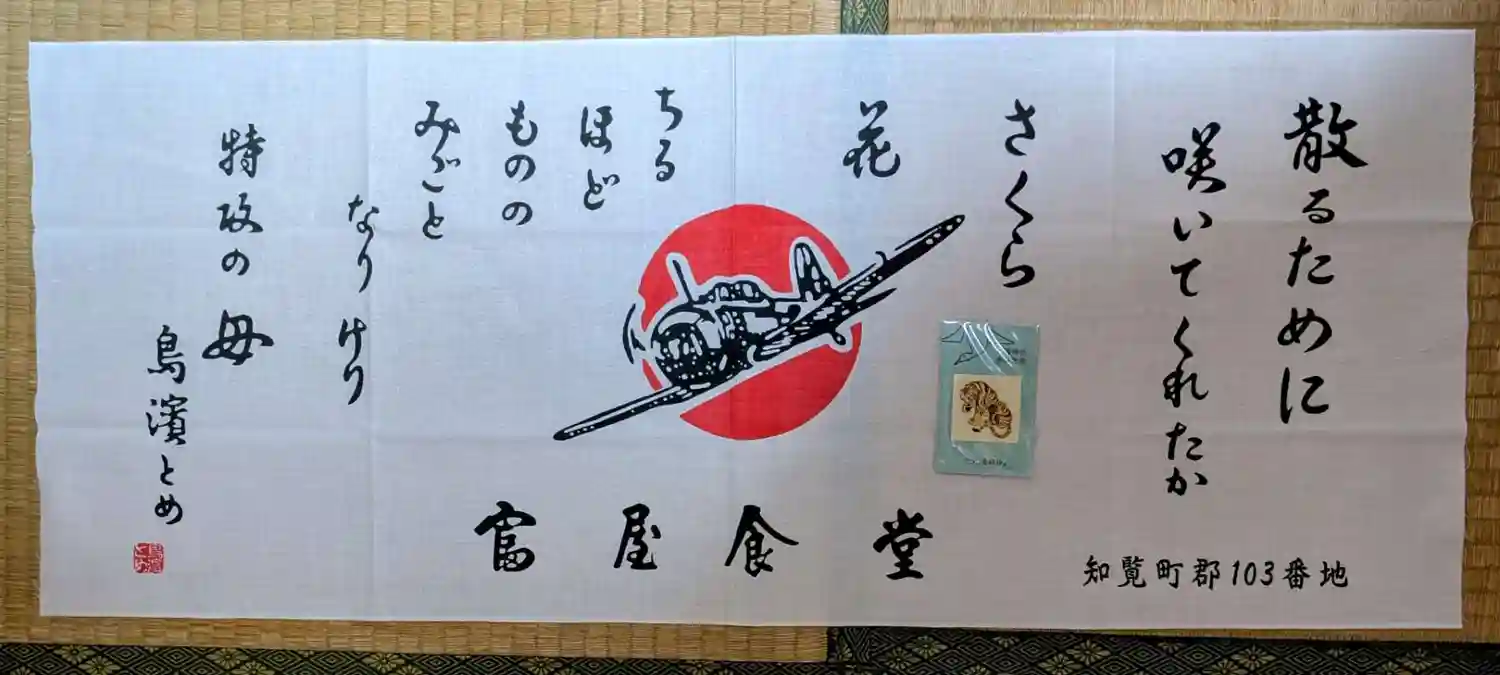 散るために
咲いてくれたか
さくら
花
ちる
ほど
ものの
みごと
なりけり
特攻の母
鳥濱とめ
富屋食堂
知覧町郡103番地